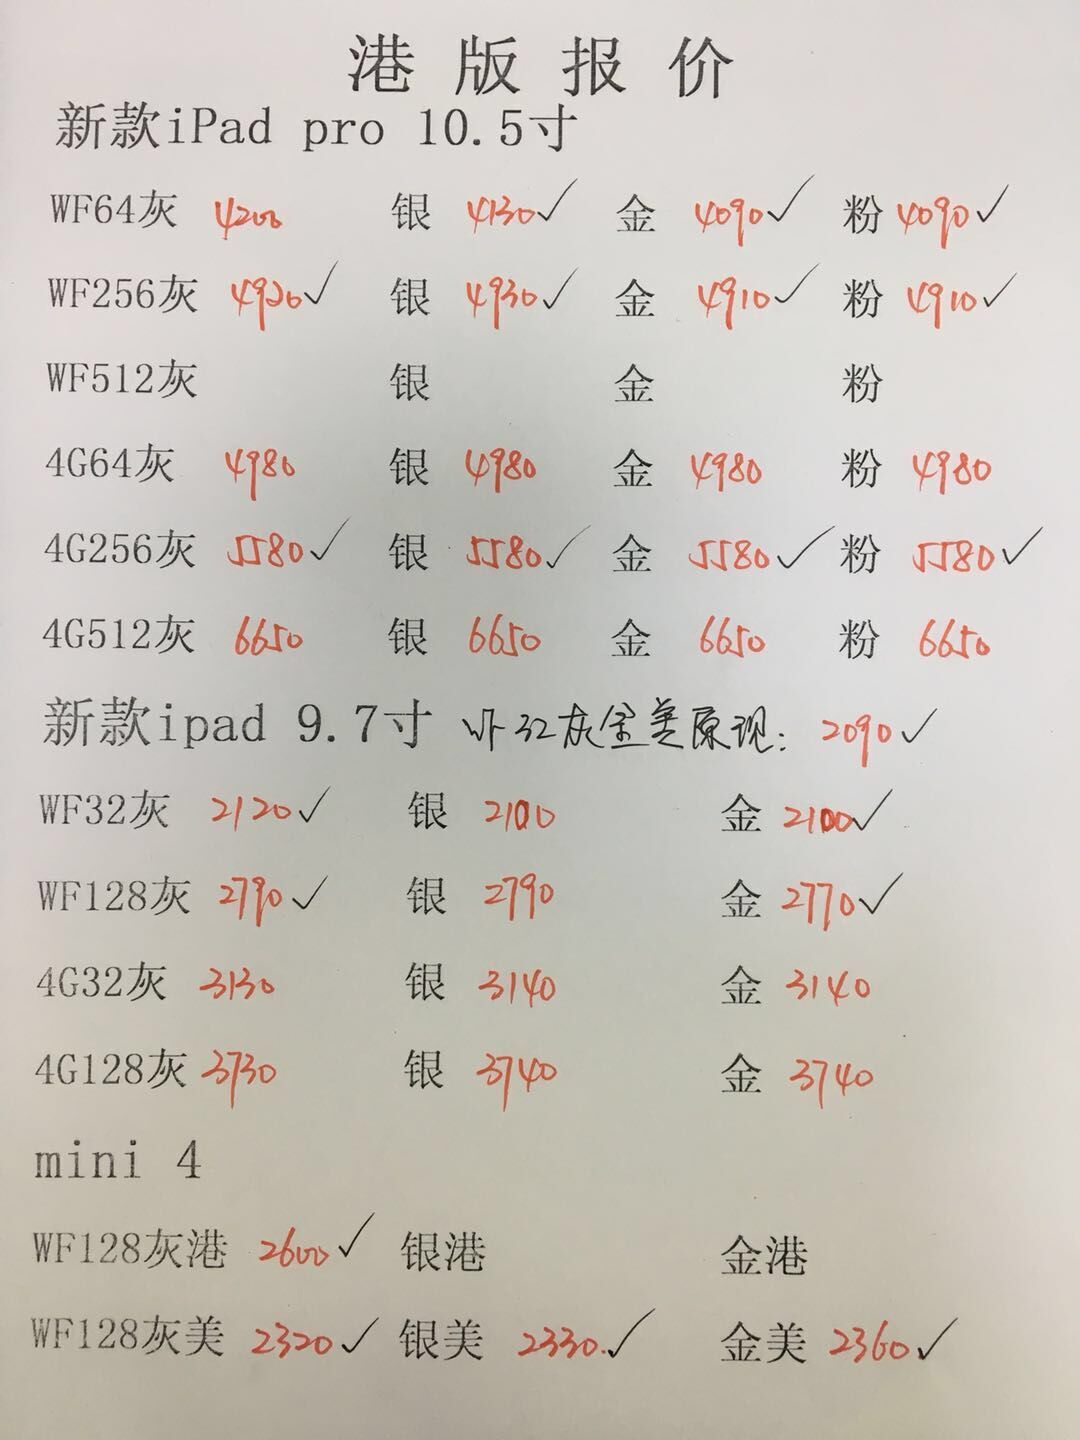 港版报价
新款iPad pro 10.5寸
WF64灰 4200 银 4130✓ 金 4090✓ 粉 4090✓
WF256灰 4920✓ 银 4930✓ 金 4910✓ 粉 4910✓
WF512灰 银 金 粉
4G64灰 4980 银 4980 金 4980 粉 4980
4G256灰 5580✓ 银 5580✓ 金 5580✓ 粉 5580✓
4G512灰 6650 银 6650 金 6650 粉 6650
新款ipad 9.7寸 32灰金美原现: 2090✓
WF32灰 2120✓ 银 2100 金 2100✓
WF128灰 2790✓ 银 2790 金 2770✓
4G32灰 3130 银 3140 金 3140
4G128灰 3730 银 3740 金 3740
mini 4
WF128灰港 2600✓ 银港 金港
WF128灰美 2320✓ 银美 2330.✓ 金美 2360✓